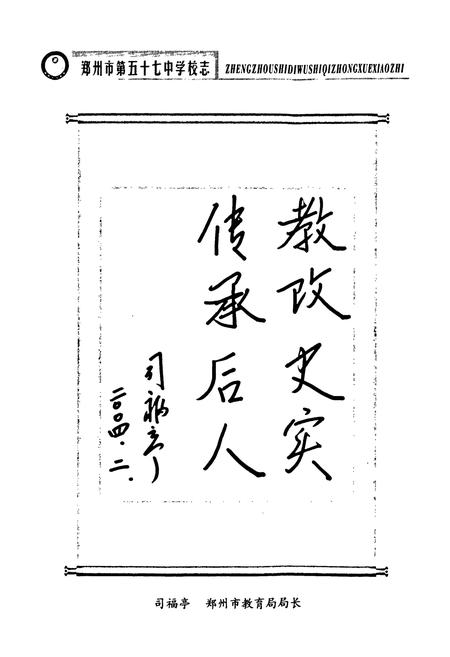 郑州市第五十七中学校志
ZHENGZHOUSHIDIWUSHIQIZHONGXUEXIAOZHI
教改史实
传承后人
司福亭
二〇〇四.二.
司福亭 郑州市教育局局长